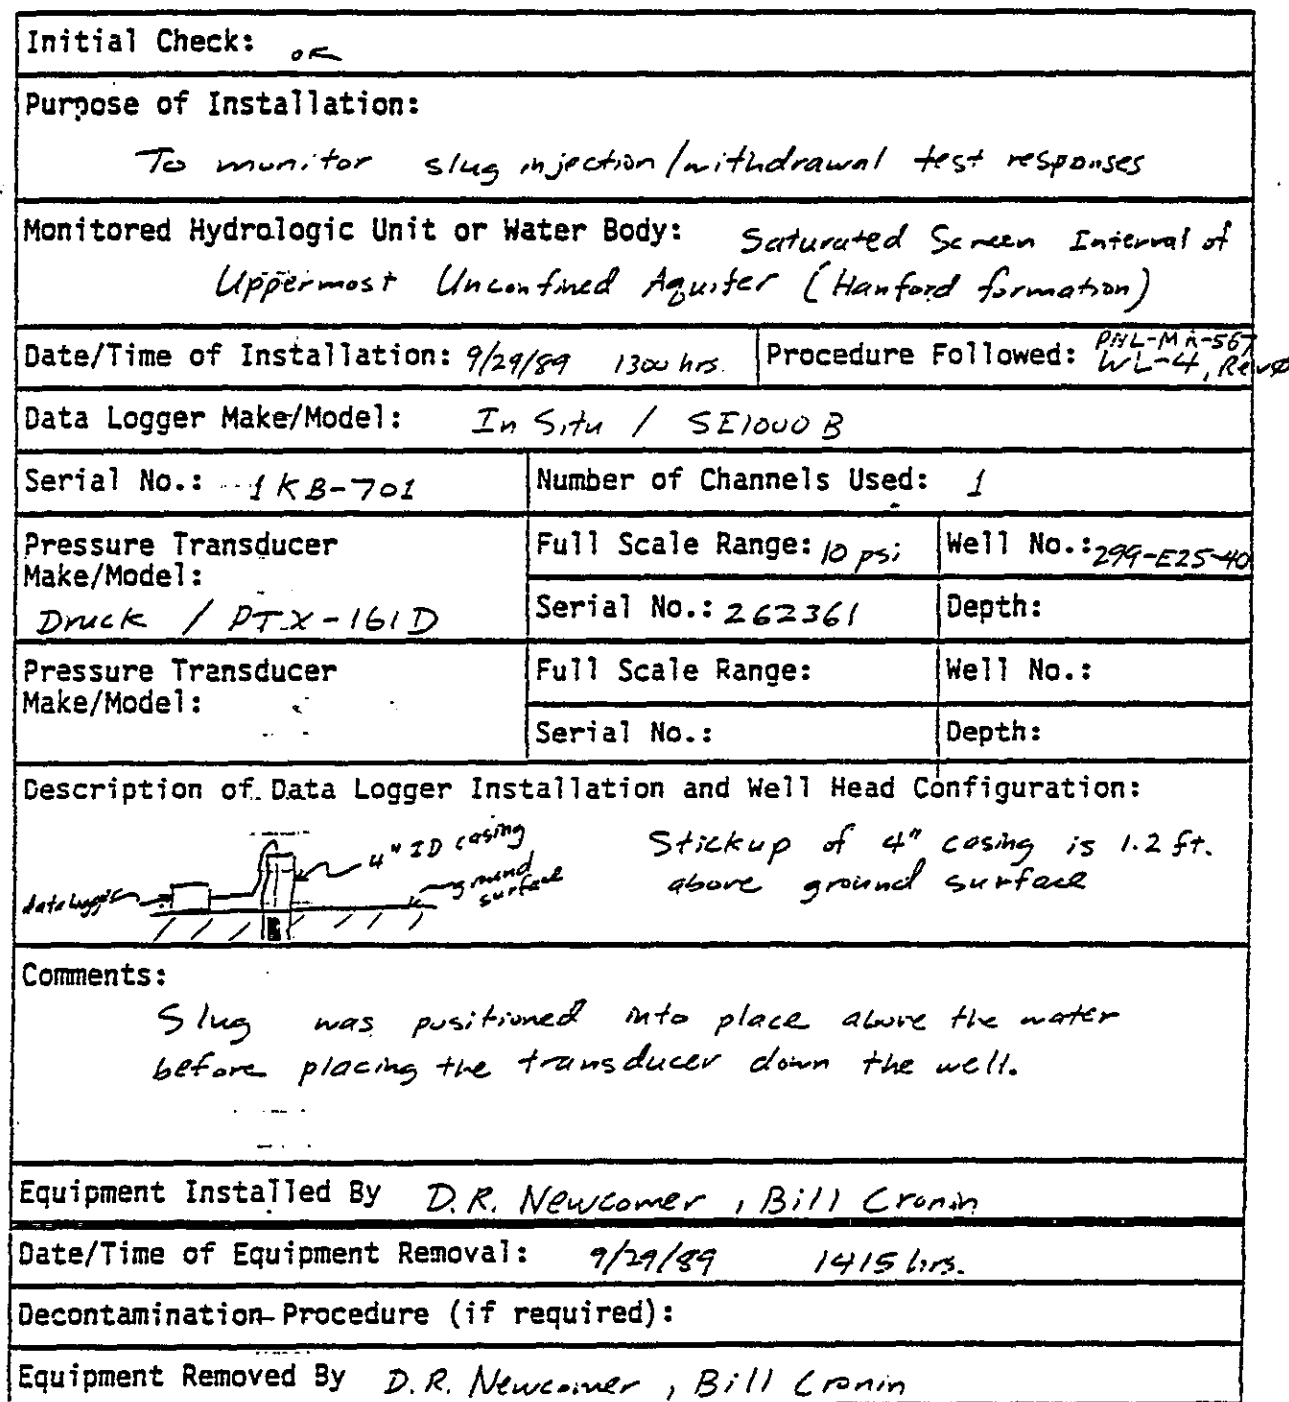 Initial Check: OK
Purpose of Installation:
To monitor slug injection/withdrawal test responses
Monitored Hydrologic Unit or Water Body: Saturated Screen Interval of
Uppermost Unconfined Aquifer (Hanford formation)
Date/Time of Installation: 9/29/89 1300 hrs. Procedure Followed: PNL-MA-567
WL-4, Rev 0
Data Logger Make/Model: In Situ / SE1000B
Serial No.: 1KB-701 Number of Channels Used: 1
Pressure Transducer
Make/Model:
Druck / PTX-161D
Full Scale Range: 10 psi Well No.: 299-E25-40
Serial No.: 262361 Depth:
Pressure Transducer
Make/Model:
Full Scale Range: Well No.:
Serial No.: Depth:
Description of Data Logger Installation and Well Head Configuration:
data logger
4" ID casing
ground
surface
Stickup of 4" casing is 1.2 ft.
above ground surface
Comments:
Slug was positioned into place above the water
before placing the transducer down the well.
Equipment Installed By D.R. Newcomer, Bill Cronin
Date/Time of Equipment Removal: 9/29/89 1415 hrs.
Decontamination Procedure (if required):
Equipment Removed By D.R. Newcomer, Bill Cronin